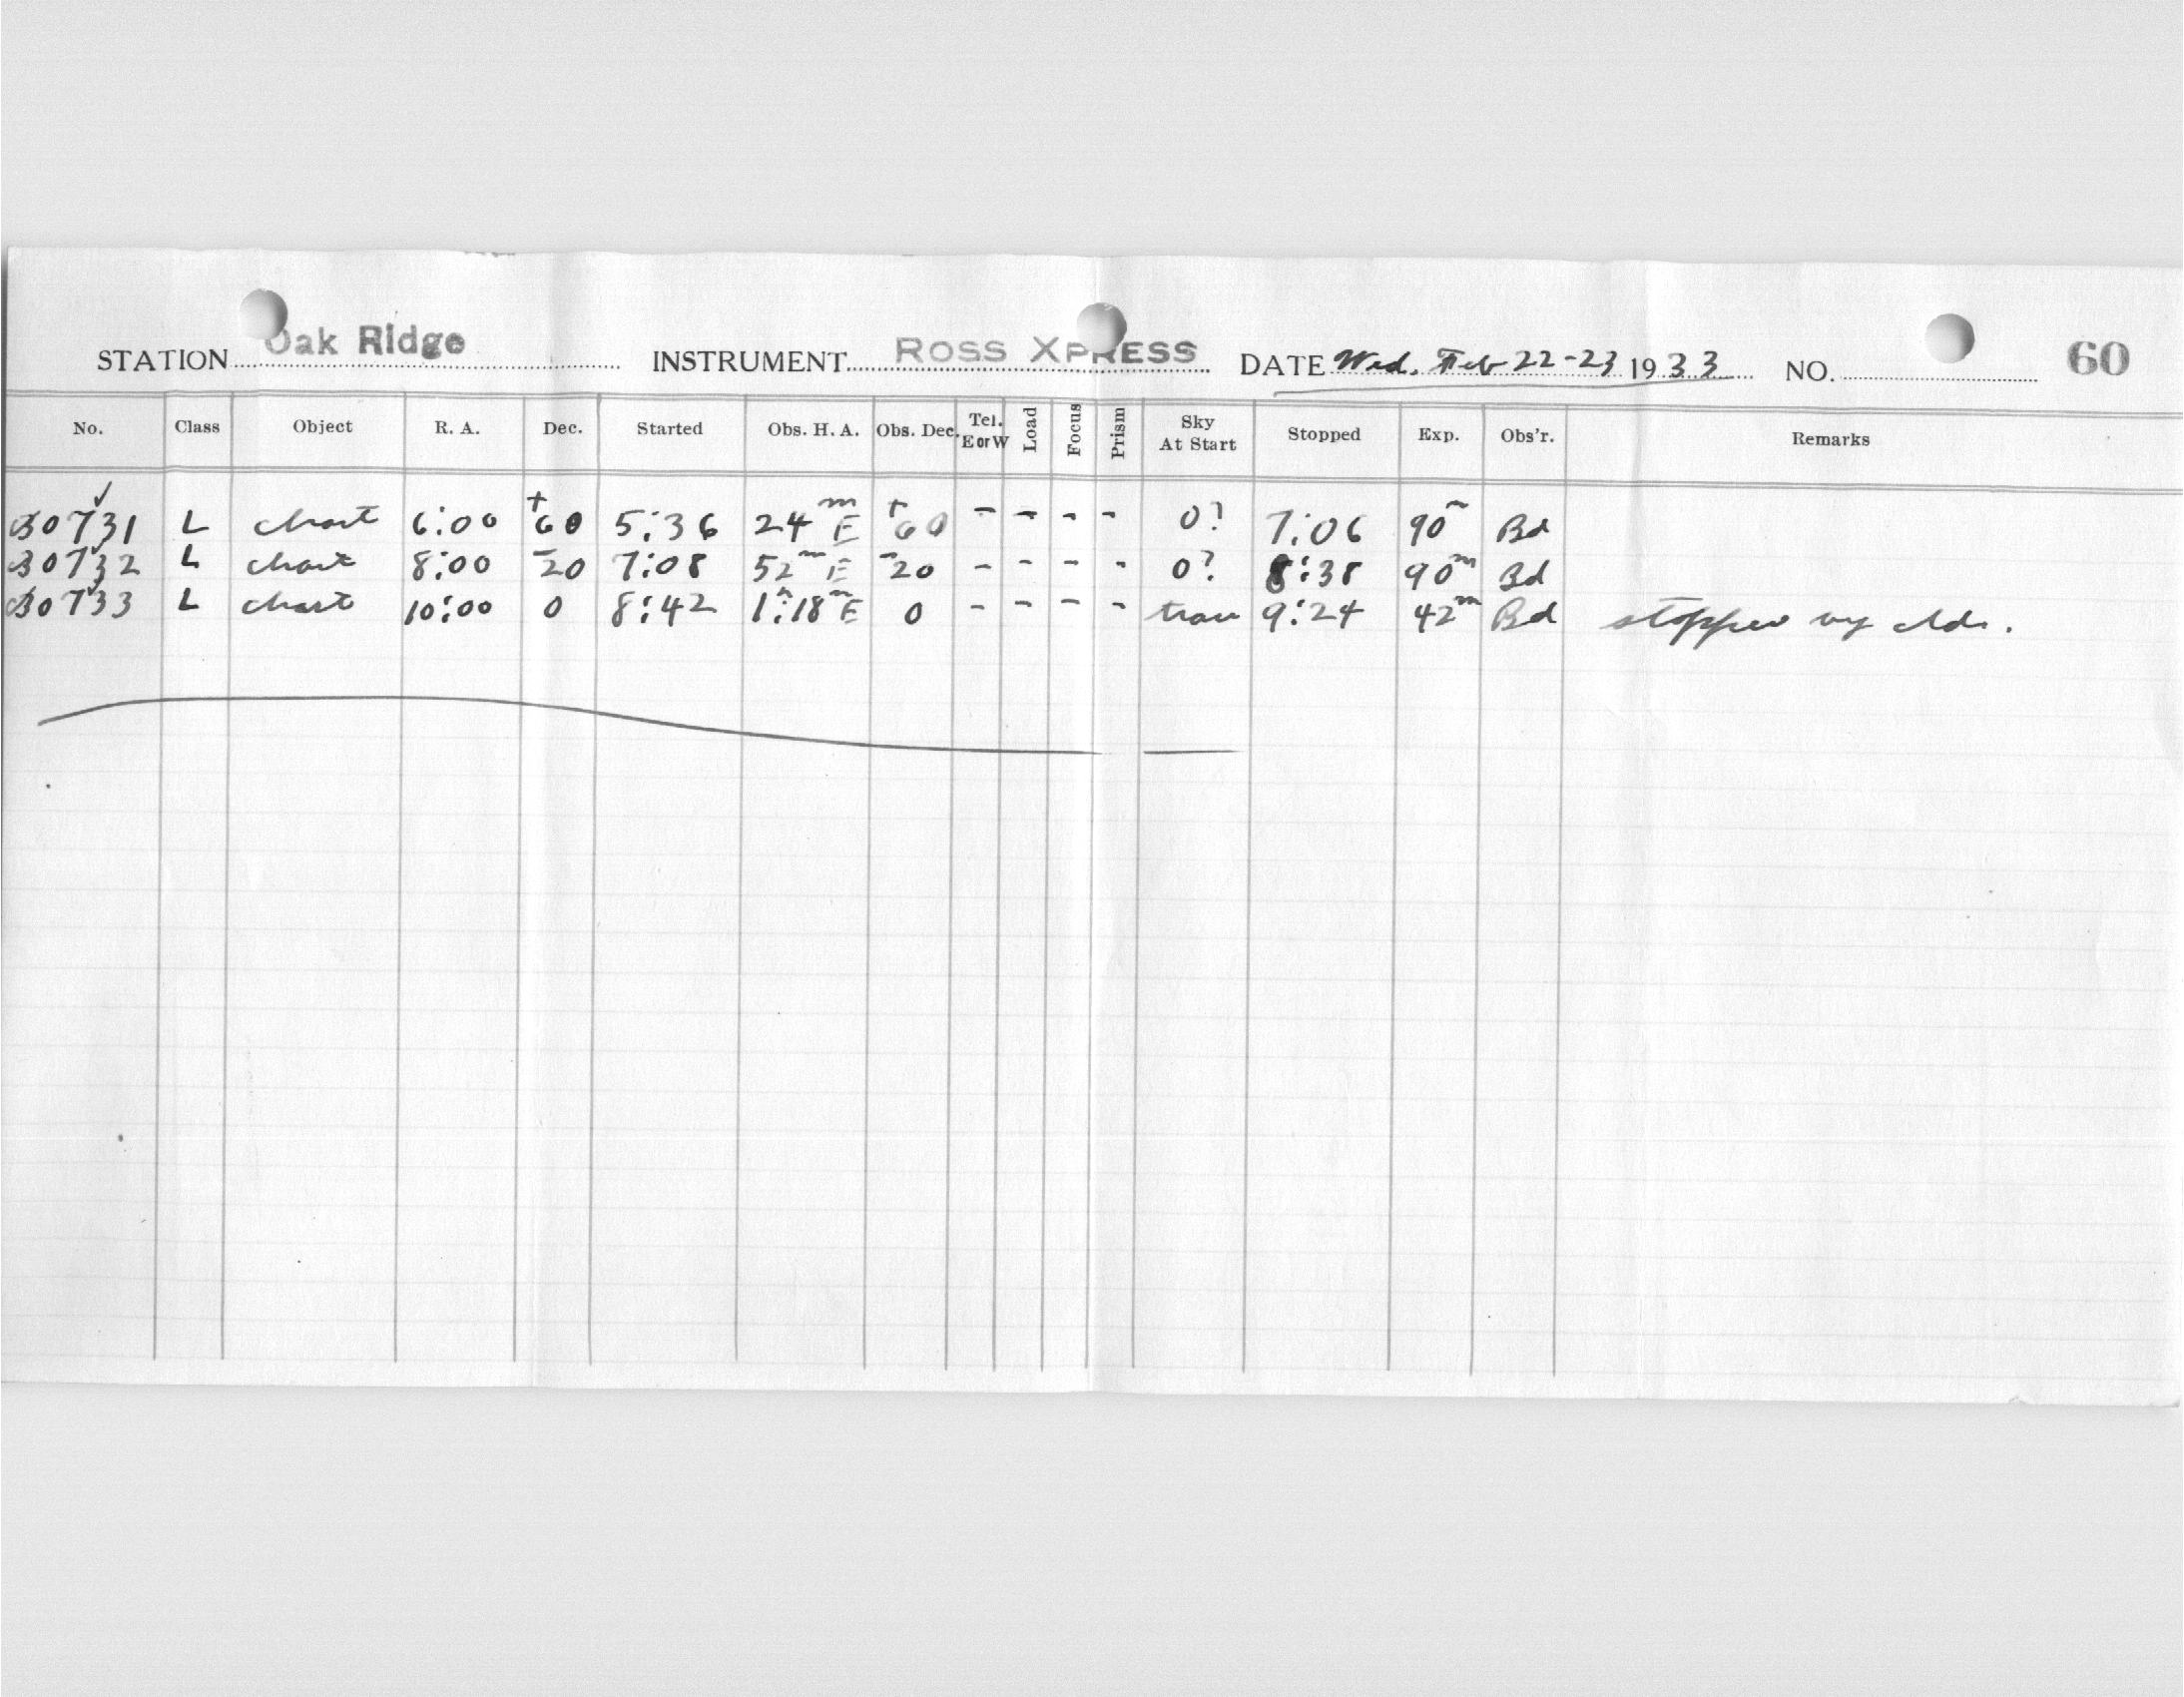 STATION Oak Ridge INSTRUMENT ROSS XPRESS DATE Wed. Feb 22-23 1933 NO. 60
No. Class Object R. A. Dec. Started Obs. H. A. Obs. Dec. Tel. E or W Load Focus Prism Sky At Start Stopped Exp. Obs'r. Remarks
30731 ✓ L chart 6:00 +60 5:36 24m E +60 - - - - 0? 7:06 90m Bd
30732 L chart 8:00 -20 7:08 52m E -20 - - - - 0? 8:38 90m Bd
30733 L chart 10:00 0 8:42 1h:18m E 0 - - - - 9:24 42m Bd stopped by clds.